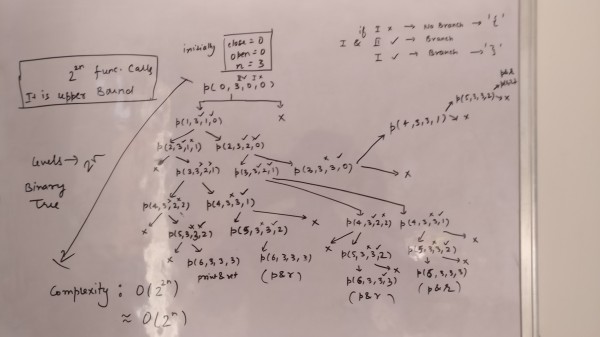 initially
close = 0
open = 0
n = 3
if I x → No Branch → '{'
I & II ✓ → Branch
I ✓ → Branch → '}'
2^2n func. calls
It is upper Bound
p(0,3,0,0)
p(1,3,1,0) x
p(2,3,1,1) p(2,3,2,0)
p(4,3,3,1) → x
p(5,3,3,2) → x
levels →
Binary
Tree
x p(3,3,2,1) p(3,3,2,1) p(3,3,3,0) x
p(4,3,2,2) p(4,3,3,1) p(4,3,2,2) p(4,3,3,1)
x p(5,3,3,2) x p(5,3,3,2) x x p(5,3,3,2) x p(5,3,3,2) x
x p(6,3,3,3) p(6,3,3,3) p(6,3,3,3) x p(6,3,3,3) x
print & ret (p&r) (p&r) (p&r)
Complexity : O(2^2n)
≈ O(2^n)